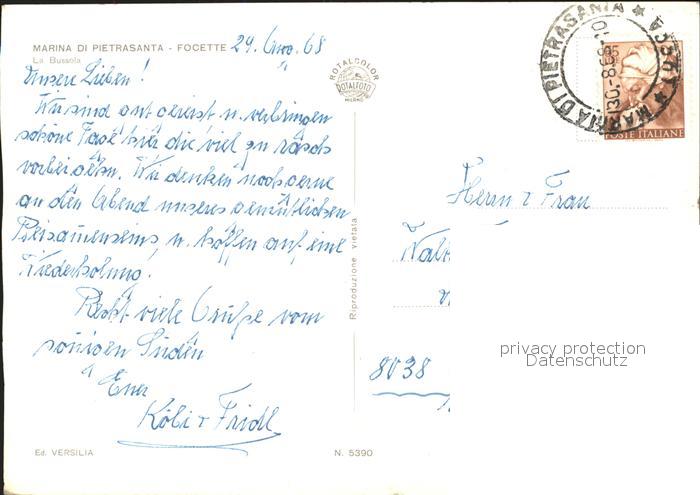 MARINA DI PIETRASANTA - FOCETTE 29. Aug. 68
La Bussola
Unsere Lieben!
Wir sind gut gereist u. verbringen
schöne Tage hier die viel zu rasch
vorbei gehn. Wir denken noch gerne
an den Abend unseres gemütlichen
Beisammenseins u. hoffen auf eine
Wiederholung!
Recht viele Grüsse vom
sonnigen Süden
Euer
Köbi + Fridl
Ed. VERSILIA
N. 5390
ROTALCOLOR
ROTALFOTO
MILANO
Riproduzione vietata
MARINA DI PIETRASANTA ★ LUCCA ★
30.-8.68
POSTE ITALIANE
Herrn & Frau
Walt
8038
privacy protection
Datenschutz